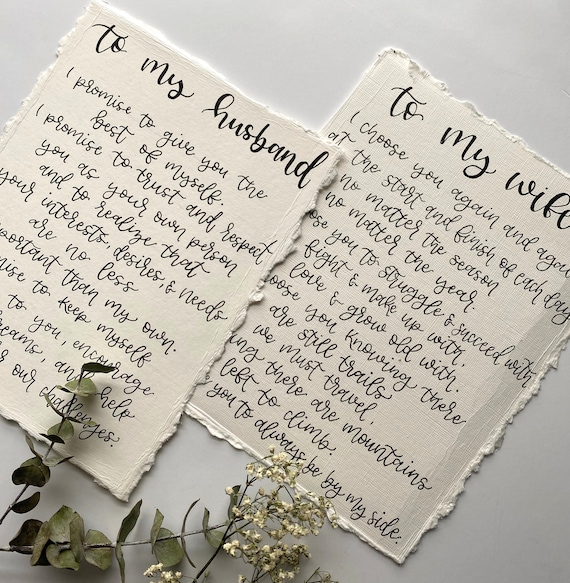 to my husband
I promise to give you the
best of myself.
I promise to trust and respect
you as your own person
and to realize that
your interests, desires, & needs
are no less
important than my own.
to keep myself
to you, encourage
and help
our challenges.
to my wife
I choose you again and again
at the start and finish of each day
no matter the season
no matter the year.
you to struggle & succeed with,
fight & make up with,
love & grow old with.
you knowing there
are still trails
we must travel,
there are mountains
left to climb.
you to always be by my side.